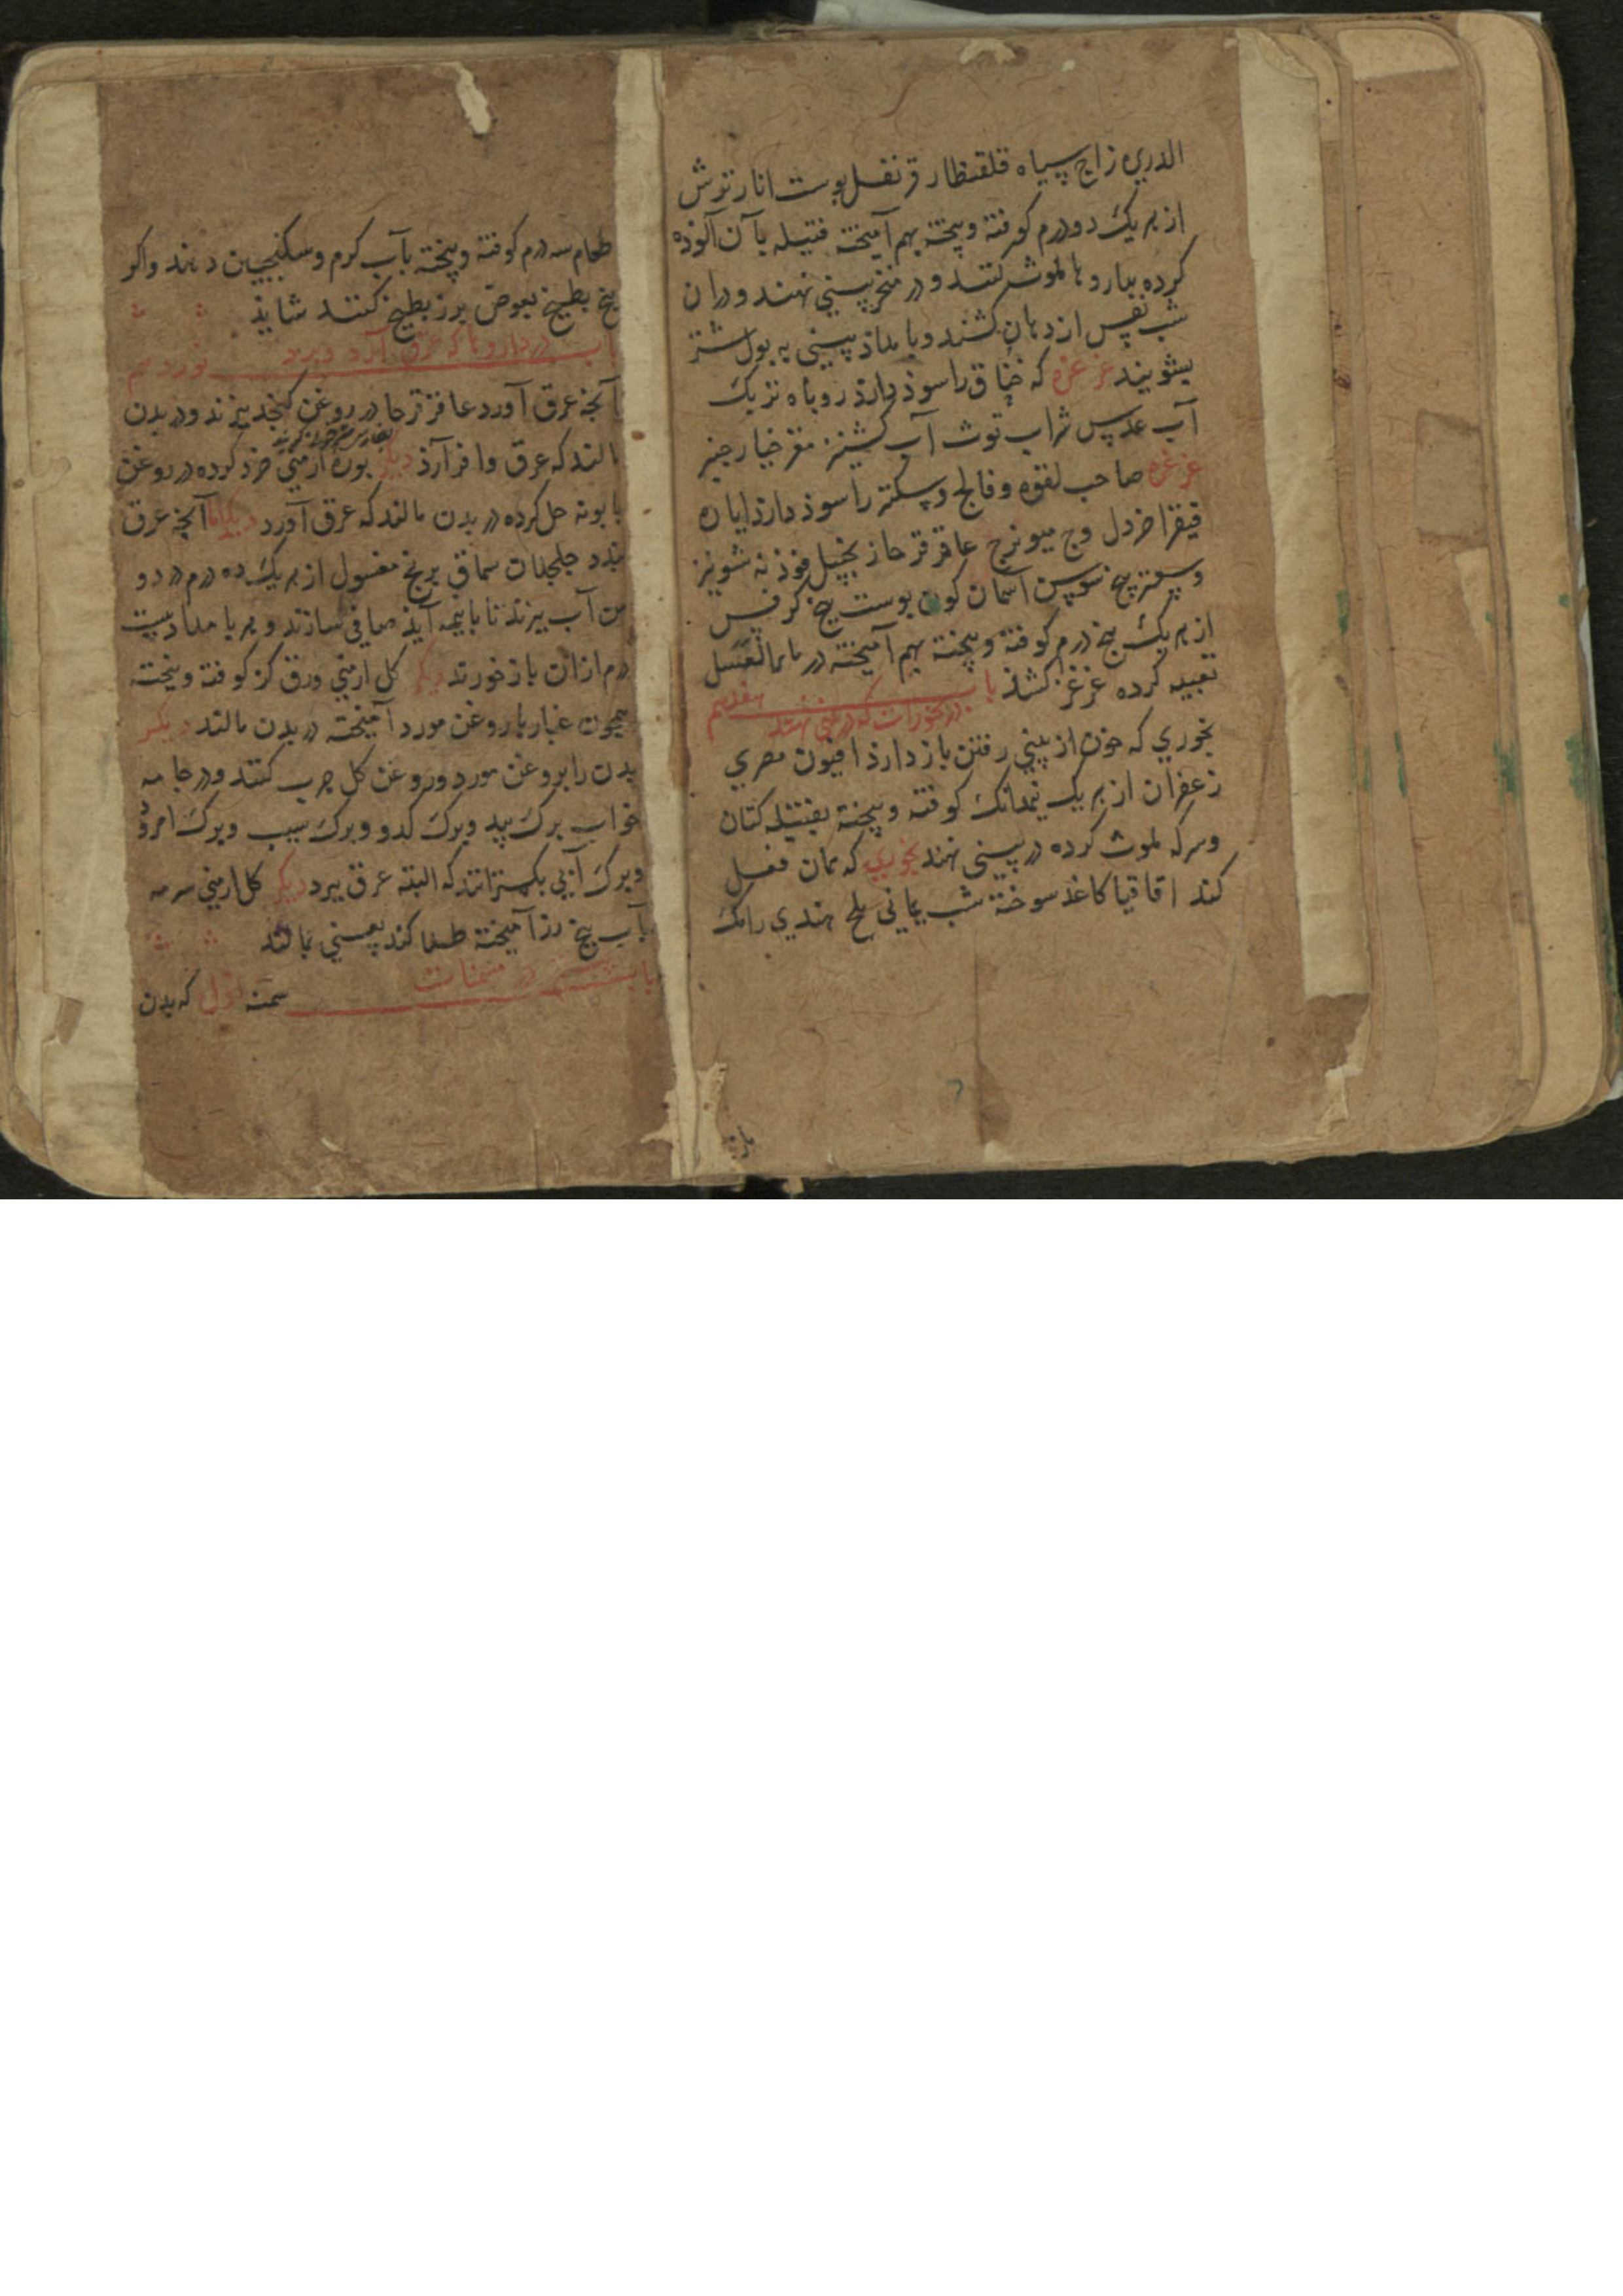 الدریره زاج سیاه قلقطار قرنفل پوست انار ترش
از هر یک دو درم کوفته و پیخته بهم آمیخته فتیله بآن آلوده
کرده بداروها ملوث کنند و در منخر بینی نهند و در ان
شب نفس از دهان کشند و بامداد بینی به بول شتر
بشویند غرغره که خناق را سوذ دارذ روباه تربک
آب عدس شراب توث آب کشنیز مغز خیار چنبر
غرغره صاحب لقوه و فالج و سکته را سوذ دارذ ایاره
فیقرا خردل وج میویزج عاقرقرحا زنجبیل فوذنه شونیز
وسعتر بیخ سوسن آسمان کون پوست بیخ کرفس
از هر یک پنج درم کوفته و پیخته بهم آمیخته در ماء العسل
تعبیه کرده غرغره کنند باب هفدهم
در بخورات که در بینی نهند
بخوری که خون از بینی رفتن باز دارذ افیون مصری
زعفران از هر یک نیمدانک کوفته و پیخته بفتیله کتان
وسرکه ملوث کرده در بینی نهند بخوری که همان فعل
کند اقاقیا کاغذ سوخته شب یمانی ملح هندی رامک
طعام سه درم کوفته و پیخته بآب کرم و سکنجبین دهند و اکر
بیخ بطیخ بعوض بزر بطیخ کنند شایذ
باب در داروها که عرق آرد و برد
آنچه عرق آورد عاقرقرحا در روغن کنجد بپزند و در بدن
مالند که عرق وافر آرذ دیکر بوره ارمنی خرد کرده در روغن
بابونه حل کرده در بدن مالند که عرق آورد دیکر اما آنچه عرق
بندد جلجلان سماق برنج مغسول از هر یک ده درم در دو
من آب بپزند تا بانیمه آید صافی سازند و هر بامداد بیست
درم ازان باز خورند دیکر کل ارمنی ورق کز کوفته و بیخته
همچون غبار با روغن مورد آمیخته در بدن مالند دیکر
بدن را بروغن مورد و روغن کل چرب کنند و در جامه
خواب برک بید و برک کدو و برک سیب و برک امرود
و برک آبی بکسترانند که البته عرق ببرد دیکر کل ارمنی سرمه
بآب بیخ رز آمیخته طلا کند یعنی بمالند
باب در مسمنات سمنه اول که بدن